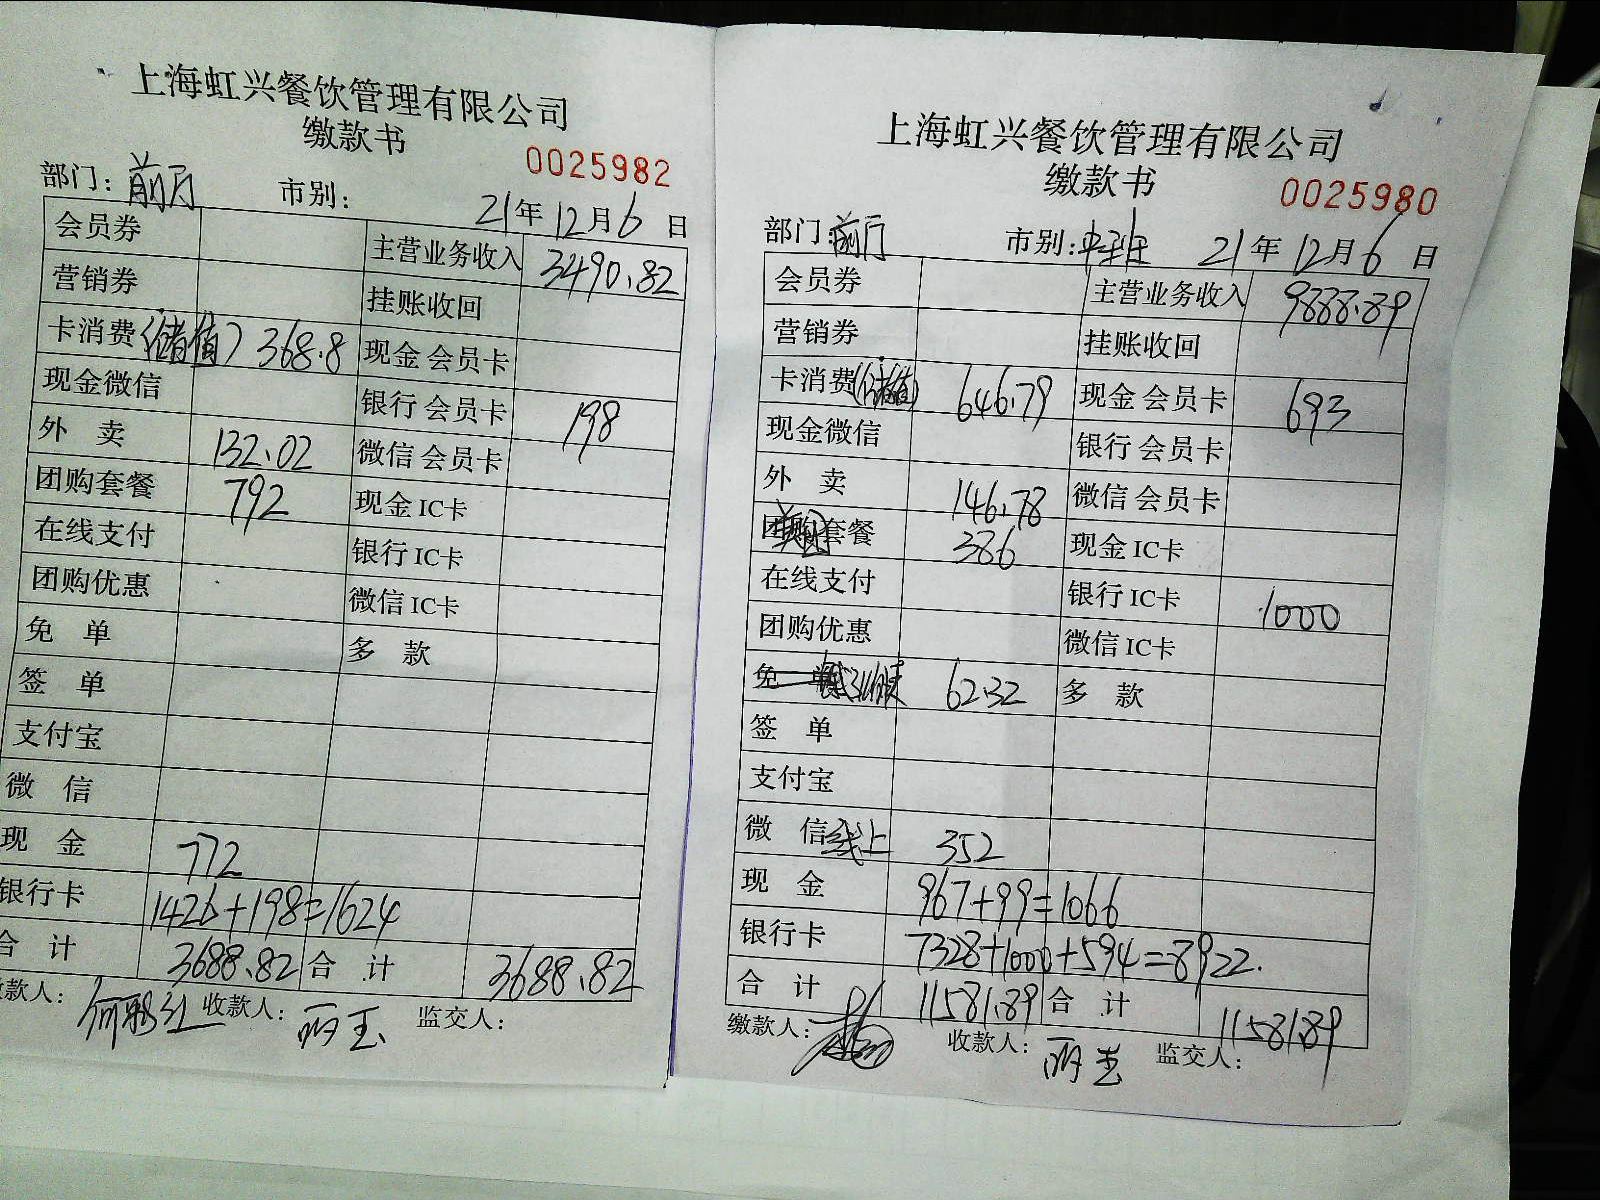 上海虹兴餐饮管理有限公司
缴款书
0025982
部门：前厅 市别： 21年12月6日
会员券 主营业务收入 3490.82
营销券 挂账收回
卡消费(储值) 368.8 现金会员卡
现金微信 银行会员卡 198
外 卖 132.02 微信会员卡
团购套餐 792 现金IC卡
在线支付 银行IC卡
团购优惠 微信IC卡
免 单 多 款
签 单
支付宝
微 信
现 金 772
银行卡 1426+198=1624
合 计 3688.82 合 计 3688.82
缴款人： 收款人：丽玉 监交人：
上海虹兴餐饮管理有限公司
缴款书
0025980
部门：前厅 市别：中班 21年12月6日
会员券 主营业务收入 9888.89
营销券 挂账收回
卡消费(储值) 646.79 现金会员卡 693
现金微信 银行会员卡
外 卖 146.78 微信会员卡
团购套餐 386 现金IC卡
在线支付 银行IC卡 1000
团购优惠 微信IC卡
免 单 62.32 多 款
签 单
支付宝
微 信线上 352
现 金 967+99=1066
银行卡 7328+1000+594=8922.
合 计 11581.89 合 计 11581.89
缴款人： 收款人：丽玉 监交人：